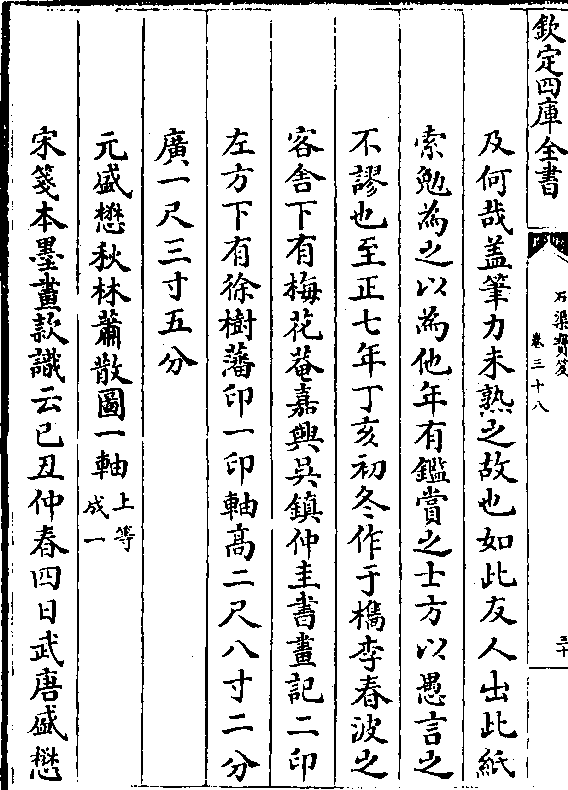 欽定四庫全書
石渠寳笈
卷三十八
三十
及何哉盖筆力未熟之故也如此友人出此紙
索勉為之以為他年有鑑賞之士方以愚言之
不謬也至正七年丁亥初冬作于檇李春波之
客舍下有梅花菴嘉興吳鎮仲圭書畫記二印
左方下有徐樹藩印一印軸髙二尺八寸二分
廣一尺三寸五分
元盛懋秋林蕭散圖一軸上等
成一
宋箋本墨畫款識云已丑仲春四日武唐盛懋